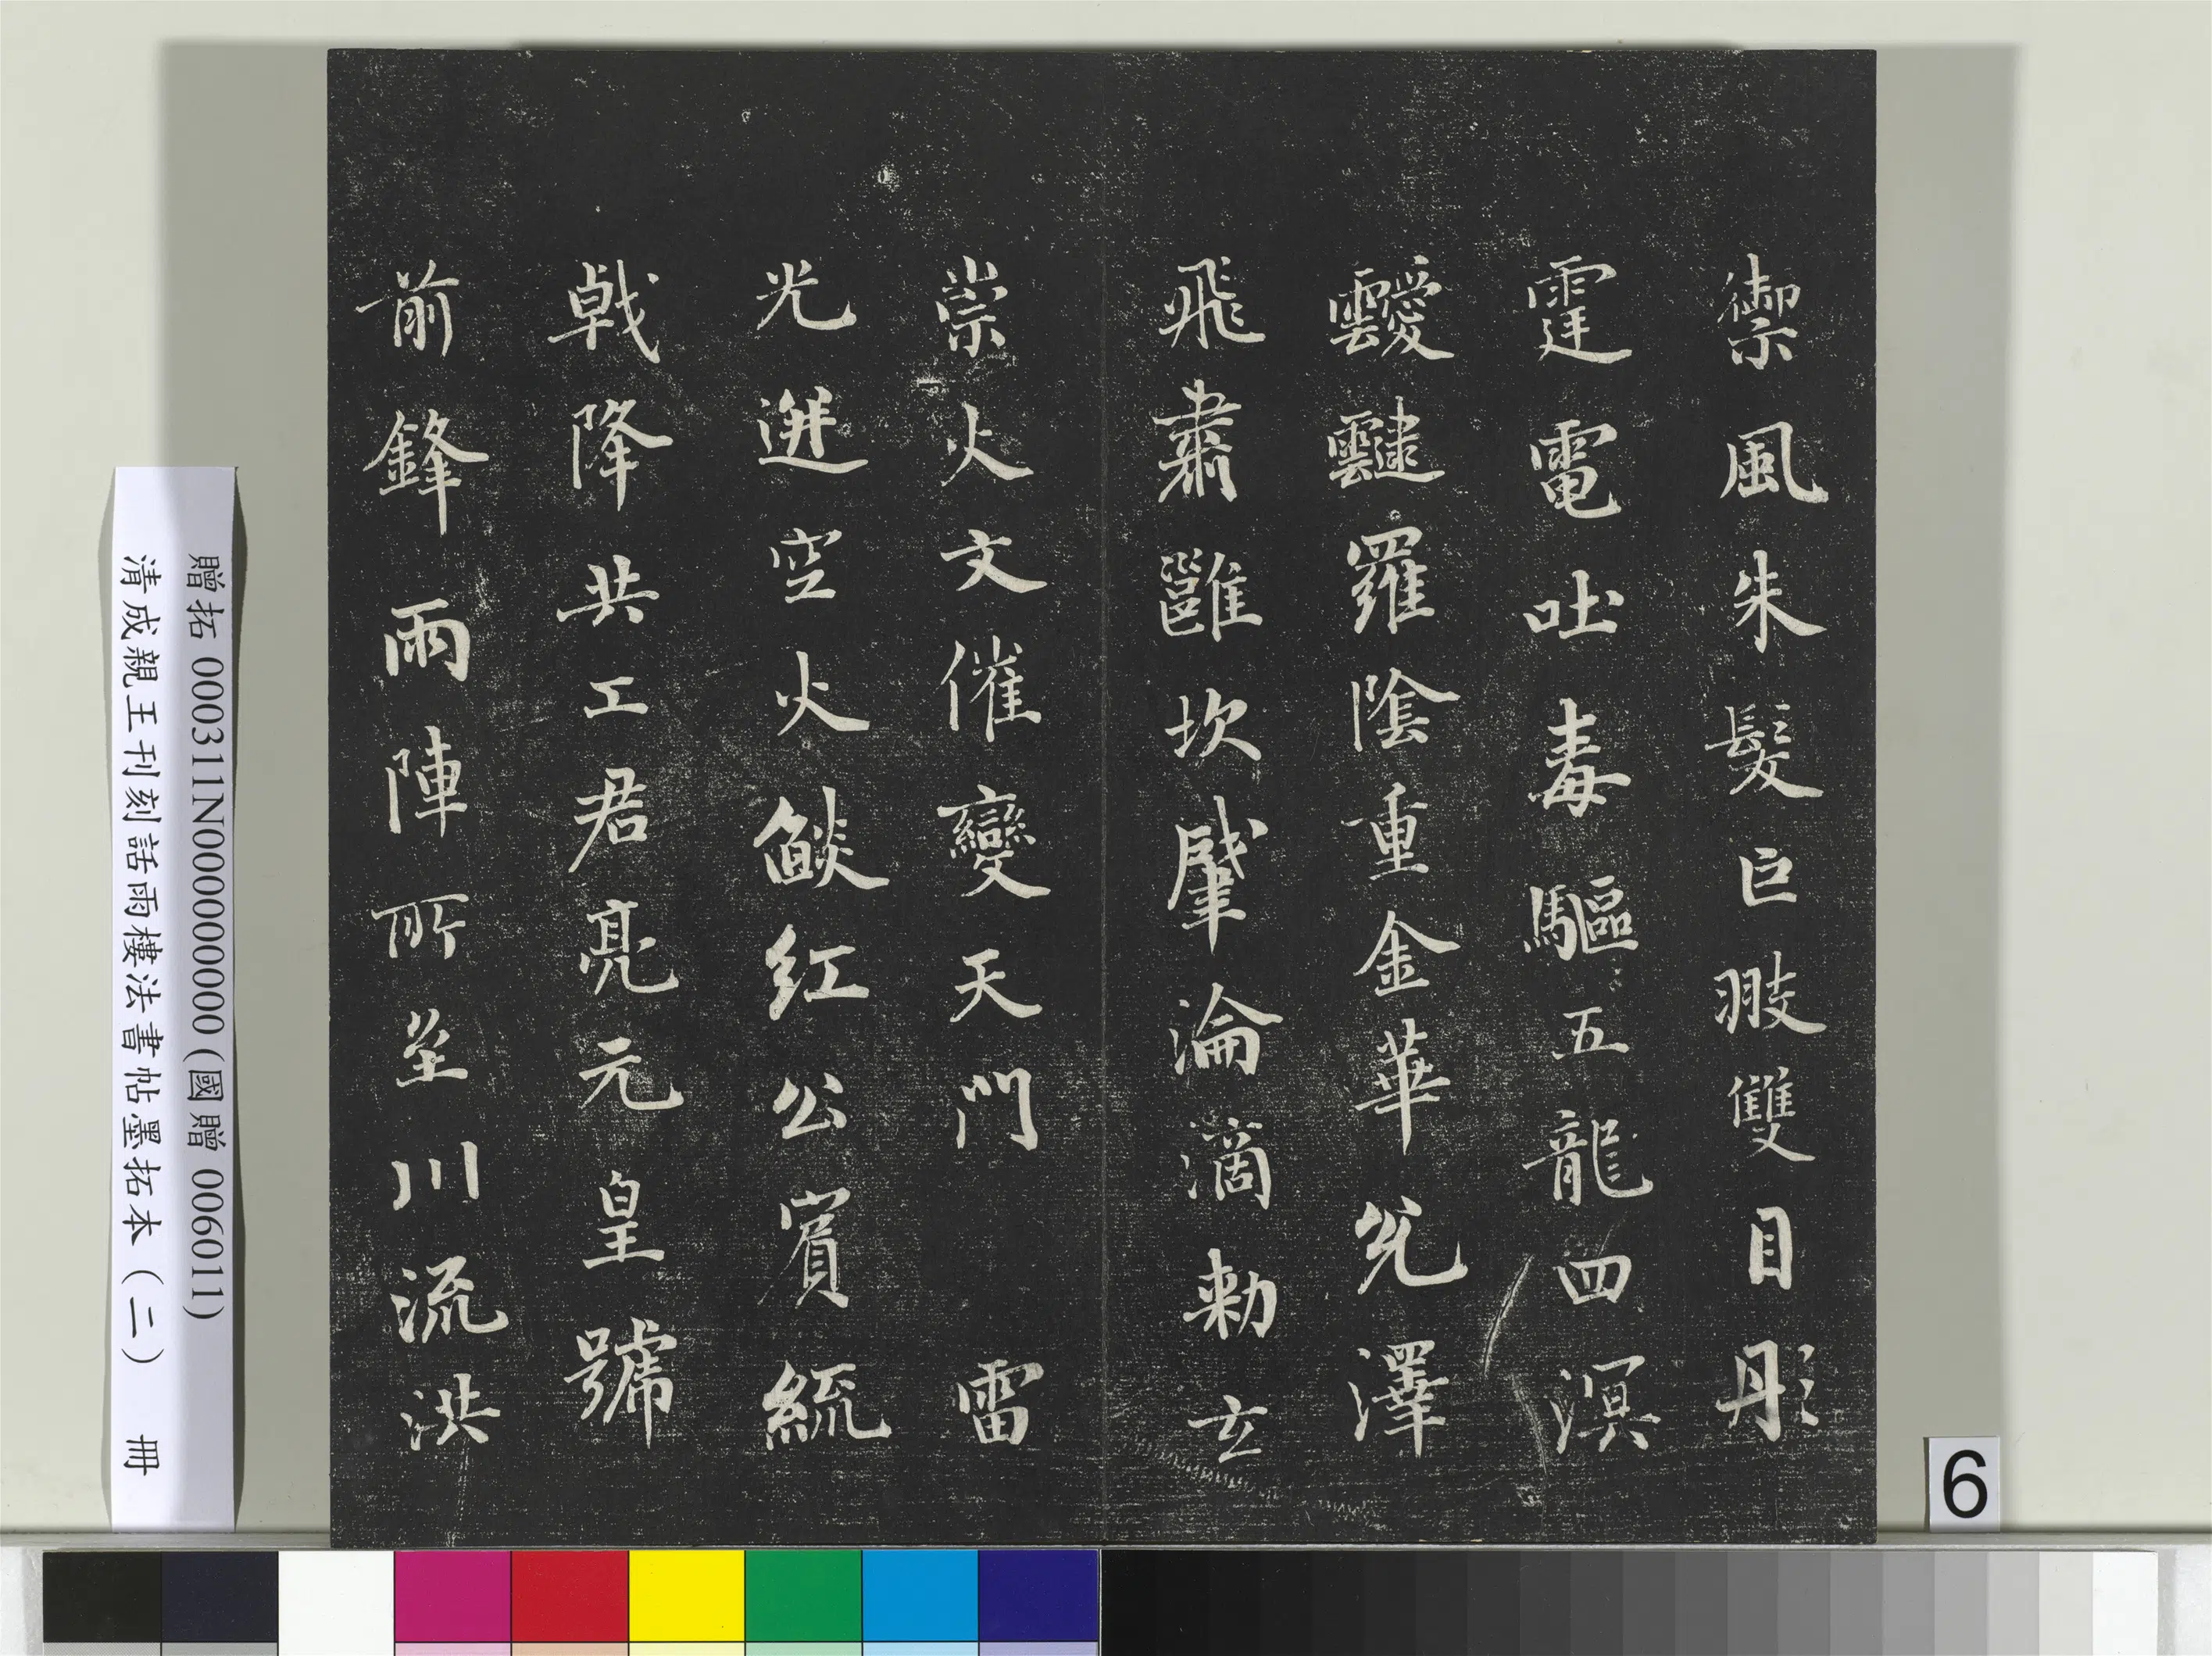 禦風朱髮巨翅雙目彤
霆電吐毒驅五龍四溟
靉靆羅陰重金華兊澤
飛肅雝坎肇淪滴勅玄
崇火文催變天門　雷
光迸空火燄紅公賓統
戟降共工君亮元皇號
前鋒兩陣所至川流洪
贈拓 000311N000000000 (國贈 006011)
清成親王刊刻話雨樓法書帖墨拓本（二）　冊
6